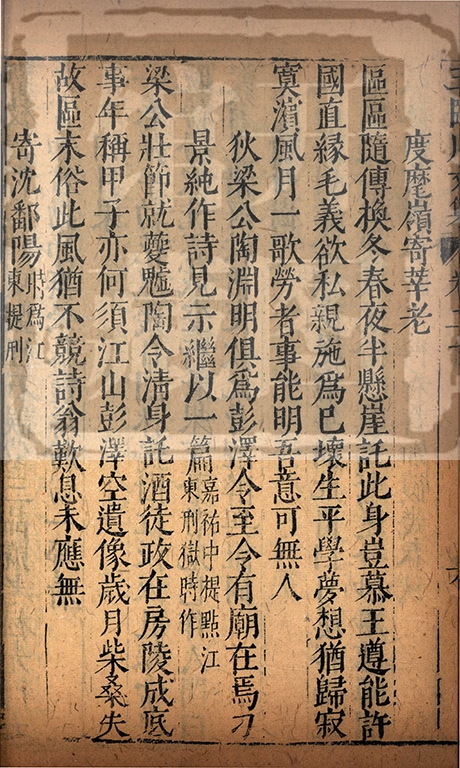 度麾嶺寄莘老
區區隨傳換冬春夜半懸崖託此身豈慕王尊能許
國直緣毛義欲私親施爲已壞生平學夢想猶歸寂
寞濱風月一歌勞者事能明吾意可無人
狄梁公陶淵明俱爲彭澤令至今有廟在焉刁
景純作詩見示繼以一篇嘉祐中提點江東刑獄時作
梁公壯節就夔魖陶令清身託酒徒政在房陵成底
事年稱甲子亦何須江山彭澤空遺像歲月柴桑失
故區末俗此風猶不競詩翁歎息未應無
寄沈鄱陽時爲江東提刑